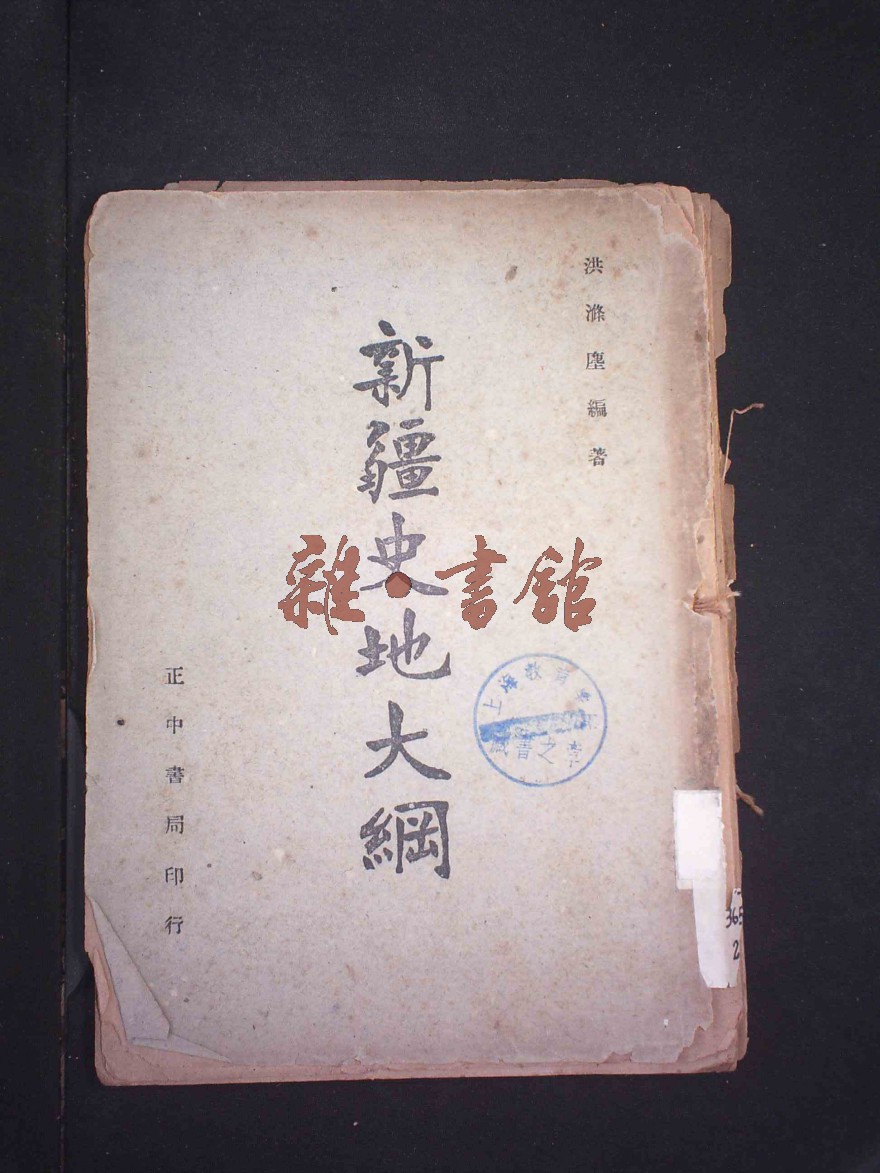 洪滌塵編著
新疆史地大綱
正中書局印行
雜書館
上海教育
藏書之章
365
2